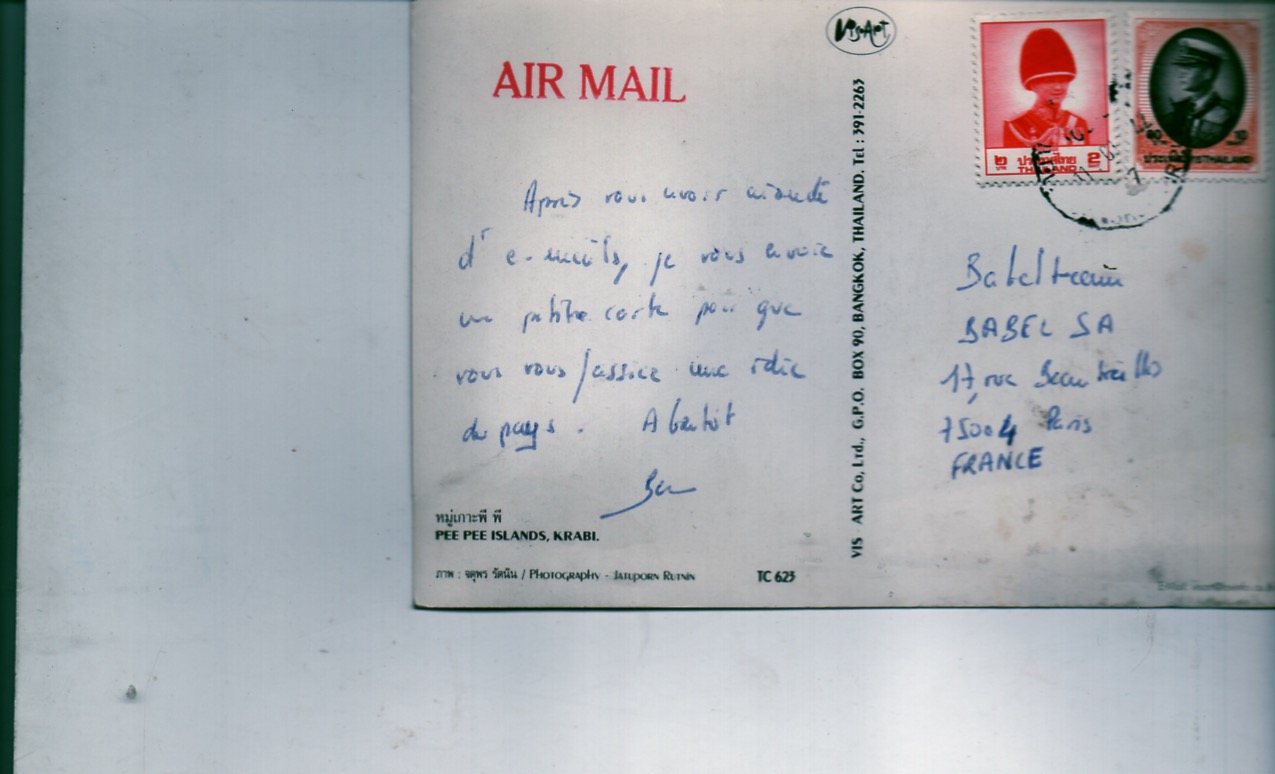 Vis-Art
AIR MAIL
Après vous avoir inondé
d'e-mails, je vous envoie
une petite carte pour que
vous vous fassiez une idée
du pays. A bientôt
Ben
หมู่เกาะพี พี
PEE PEE ISLANDS, KRABI.
ภาพ : จตุพร รัตนิน / Photography - Jatuporn Rutnin
TC 623
VIS ART Co, Ltd., G.P.O. BOX 90, BANGKOK, THAILAND. Tel : 391-2263
๒ ประเทศไทย 2
THAILAND
10
ประเทศไทย THAILAND
Babelteam
BABEL SA
17, rue Beautreillis
75004 Paris
FRANCE